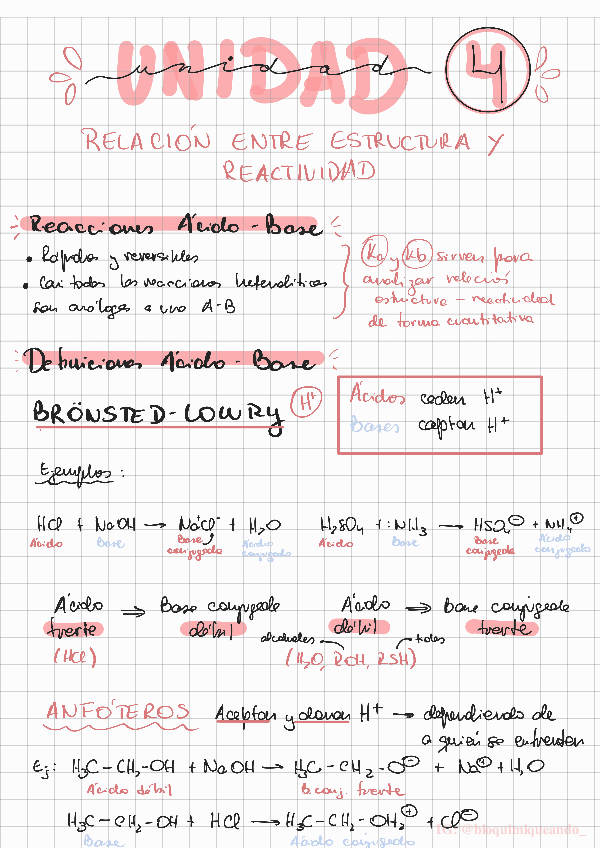 UNIDAD
unidad 4
RELACIÓN ENTRE ESTRUCTURA Y
REACTIVIDAD
Reacciones Ácido - Base
• Rápidas y reversibles
• Casi todas las reacciones heterolíticas
son análogas a una A-B
Ka y Kb sirven para
analizar relación
estructura – reactividad
de forma cuantitativa
Definiciones Ácido - Base
BRÖNSTED-LOWRY H⁺
Ácidos ceden H⁺
Bases captan H⁺
Ejemplos:
HCl + NaOH → Na⁺Cl⁻ + H₂O
Ácido Base Base conjugada Ácido conjugado
H₂SO₄ + :NH₃ → HSO₄⊖ + NH₄⊕
Ácido Base Base conjugada Ácido conjugado
Ácido ⇒ Base conjugada
fuerte débil
(HCl)
Ácido ⇒ base conjugada
débil fuerte
alcoholes tioles
(H₂O, ROH, RSH)
ANFÓTEROS Aceptan y donan H⁺ → dependiendo de
a quién se enfrenten
Ej: H₃C-CH₂-OH + NaOH → H₃C-CH₂-O⊖ + Na⊕ + H₂O
Ácido débil b. conj. fuerte
H₃C-CH₂-OH + HCl → H₃C-CH₂-OH₂⊕ + Cl⊖
Base Ácido conjugado
IG: @bioquimiqueando_